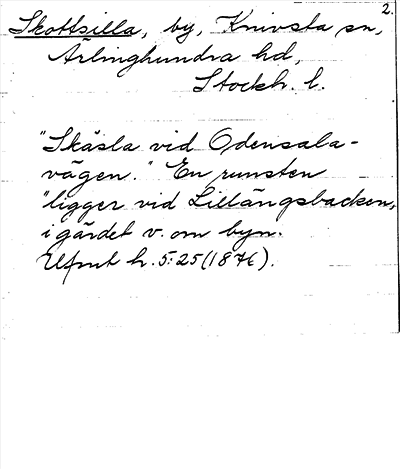 2.
Skottsilla, by, Knivsta sn,
Ärlinghundra hd,
Stockh. l.
"Skäsla vid Odensala-
vägen." En runsten
"ligger vid Lillängsbacken,
i gärdet v. om byn.
Ufmt h. 5:25 (1876).